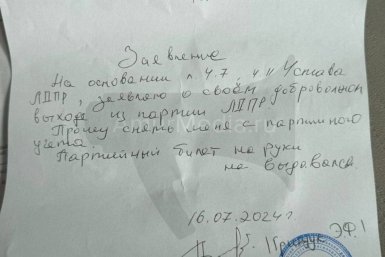 Заявление
На основании п 4.7 , 4.11 Устава
ЛДПР , заявляю о своём добровольном
выходе из партии ЛДПР.
Прошу снять меня с партийного
учёта.
Партийный билет на руки
не выдавался
16.07.2024г.
Грищук Э.Ф.